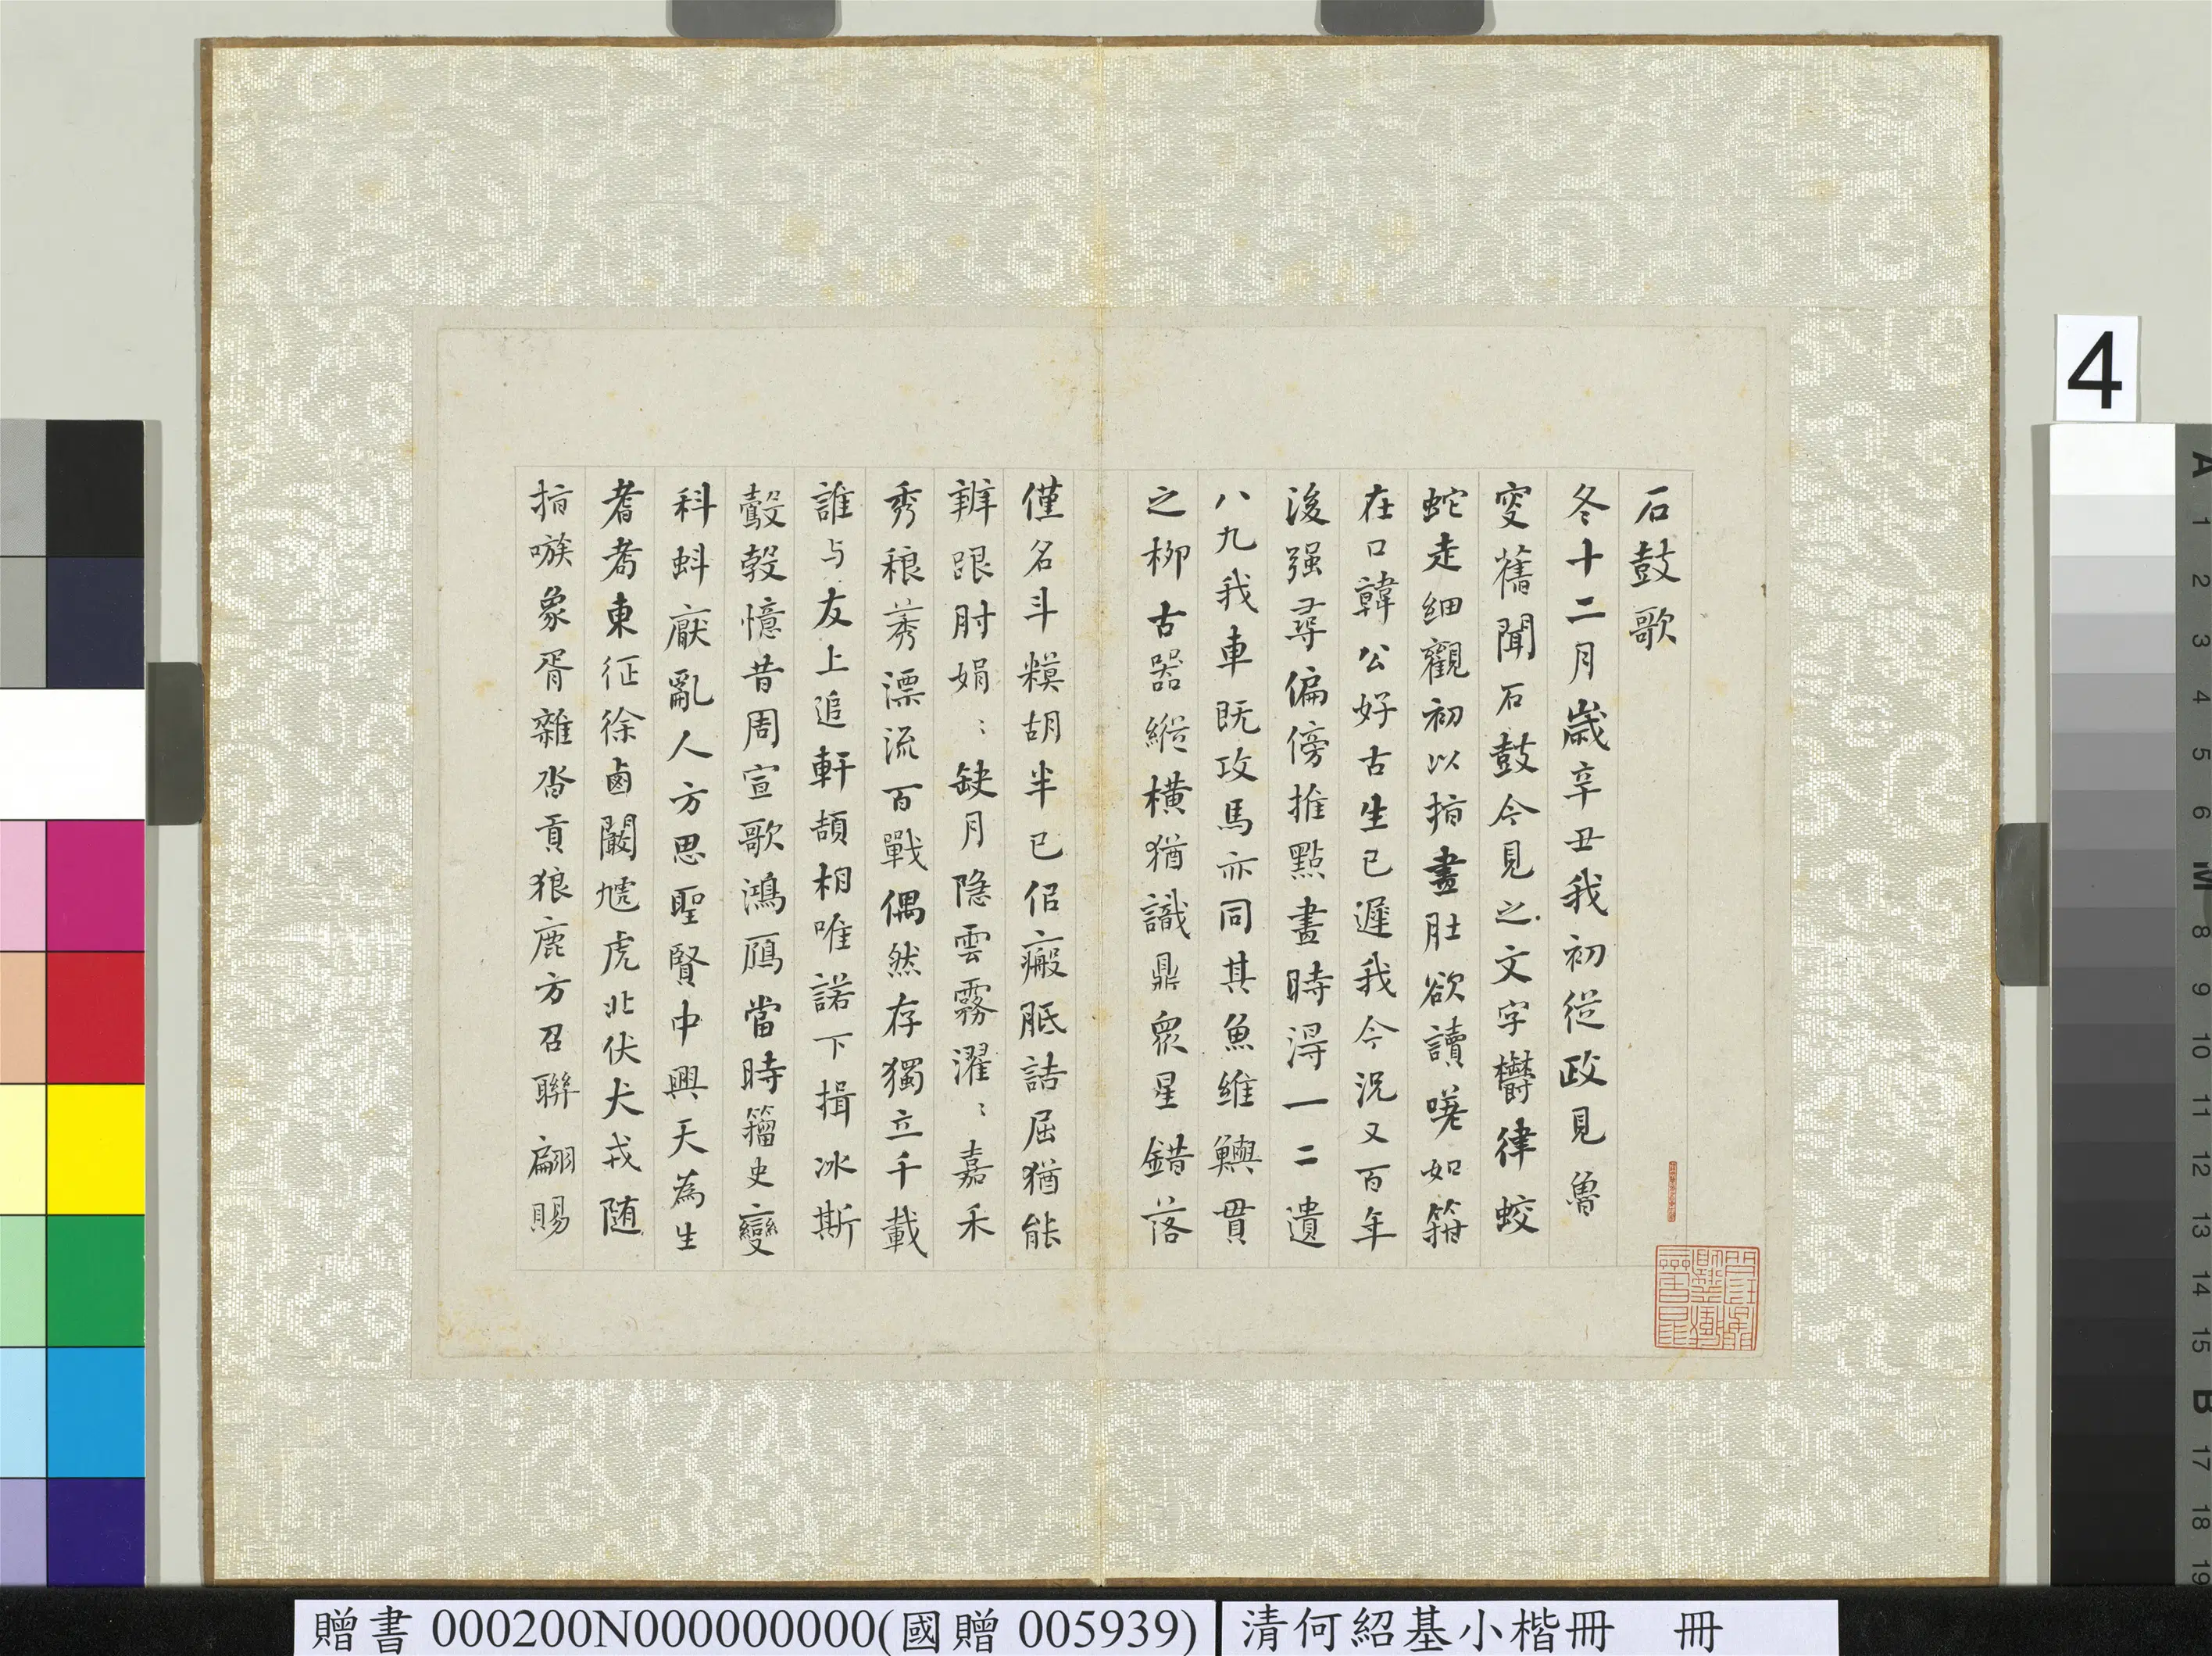 石鼓歌
冬十二月歲辛丑我初從政見魯
叟舊聞石鼓今見之文字鬱律蛟
蛇走細觀初以指畫肚欲讀嗟如箝
在口韓公好古生已遲我今況又百年
後强尋偏傍推點畫時得一二遺
八九我車既攻馬亦同其魚維鱮貫
之柳古器縱橫猶識鼎眾星錯落
僅名斗糢胡半已佀瘢胝詰屈猶能
辨跟肘娟〻缺月隐雲霧濯〻嘉禾
秀稂莠漂流百戰偶然存獨立千載
誰与友上追軒頡相唯諾下揖冰斯
鷇㝅憶昔周宣歌鴻鴈當時籀史變
科蚪厭亂人方思聖賢中興天為生
耆耇東征徐鹵闞虓虎北伏犬戎随
指嗾象胥雜沓貢狼鹿方召聯翩賜
4
A 1 2 3 4 5 6 M 8 9 10 11 12 13 14 15 B 17 18 19
贈書 000200N000000000(國贈 005939)
清何紹基小楷冊 冊